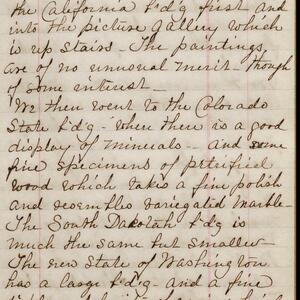 the California b'd'g first and
into the picture gallery which
is up stairs – The paintings
are of no unusual merit though
of some interest –
We then went to the Colorado
State b'd'g – when there is a good
display of minerals – and some
fine specimens of petrified
wood which takes a fine polish
and resembles variegated marble –
The South Dakotah b'd'g is
much the same but smaller –
The new State of Washington
has a large b'd'g – and a fine